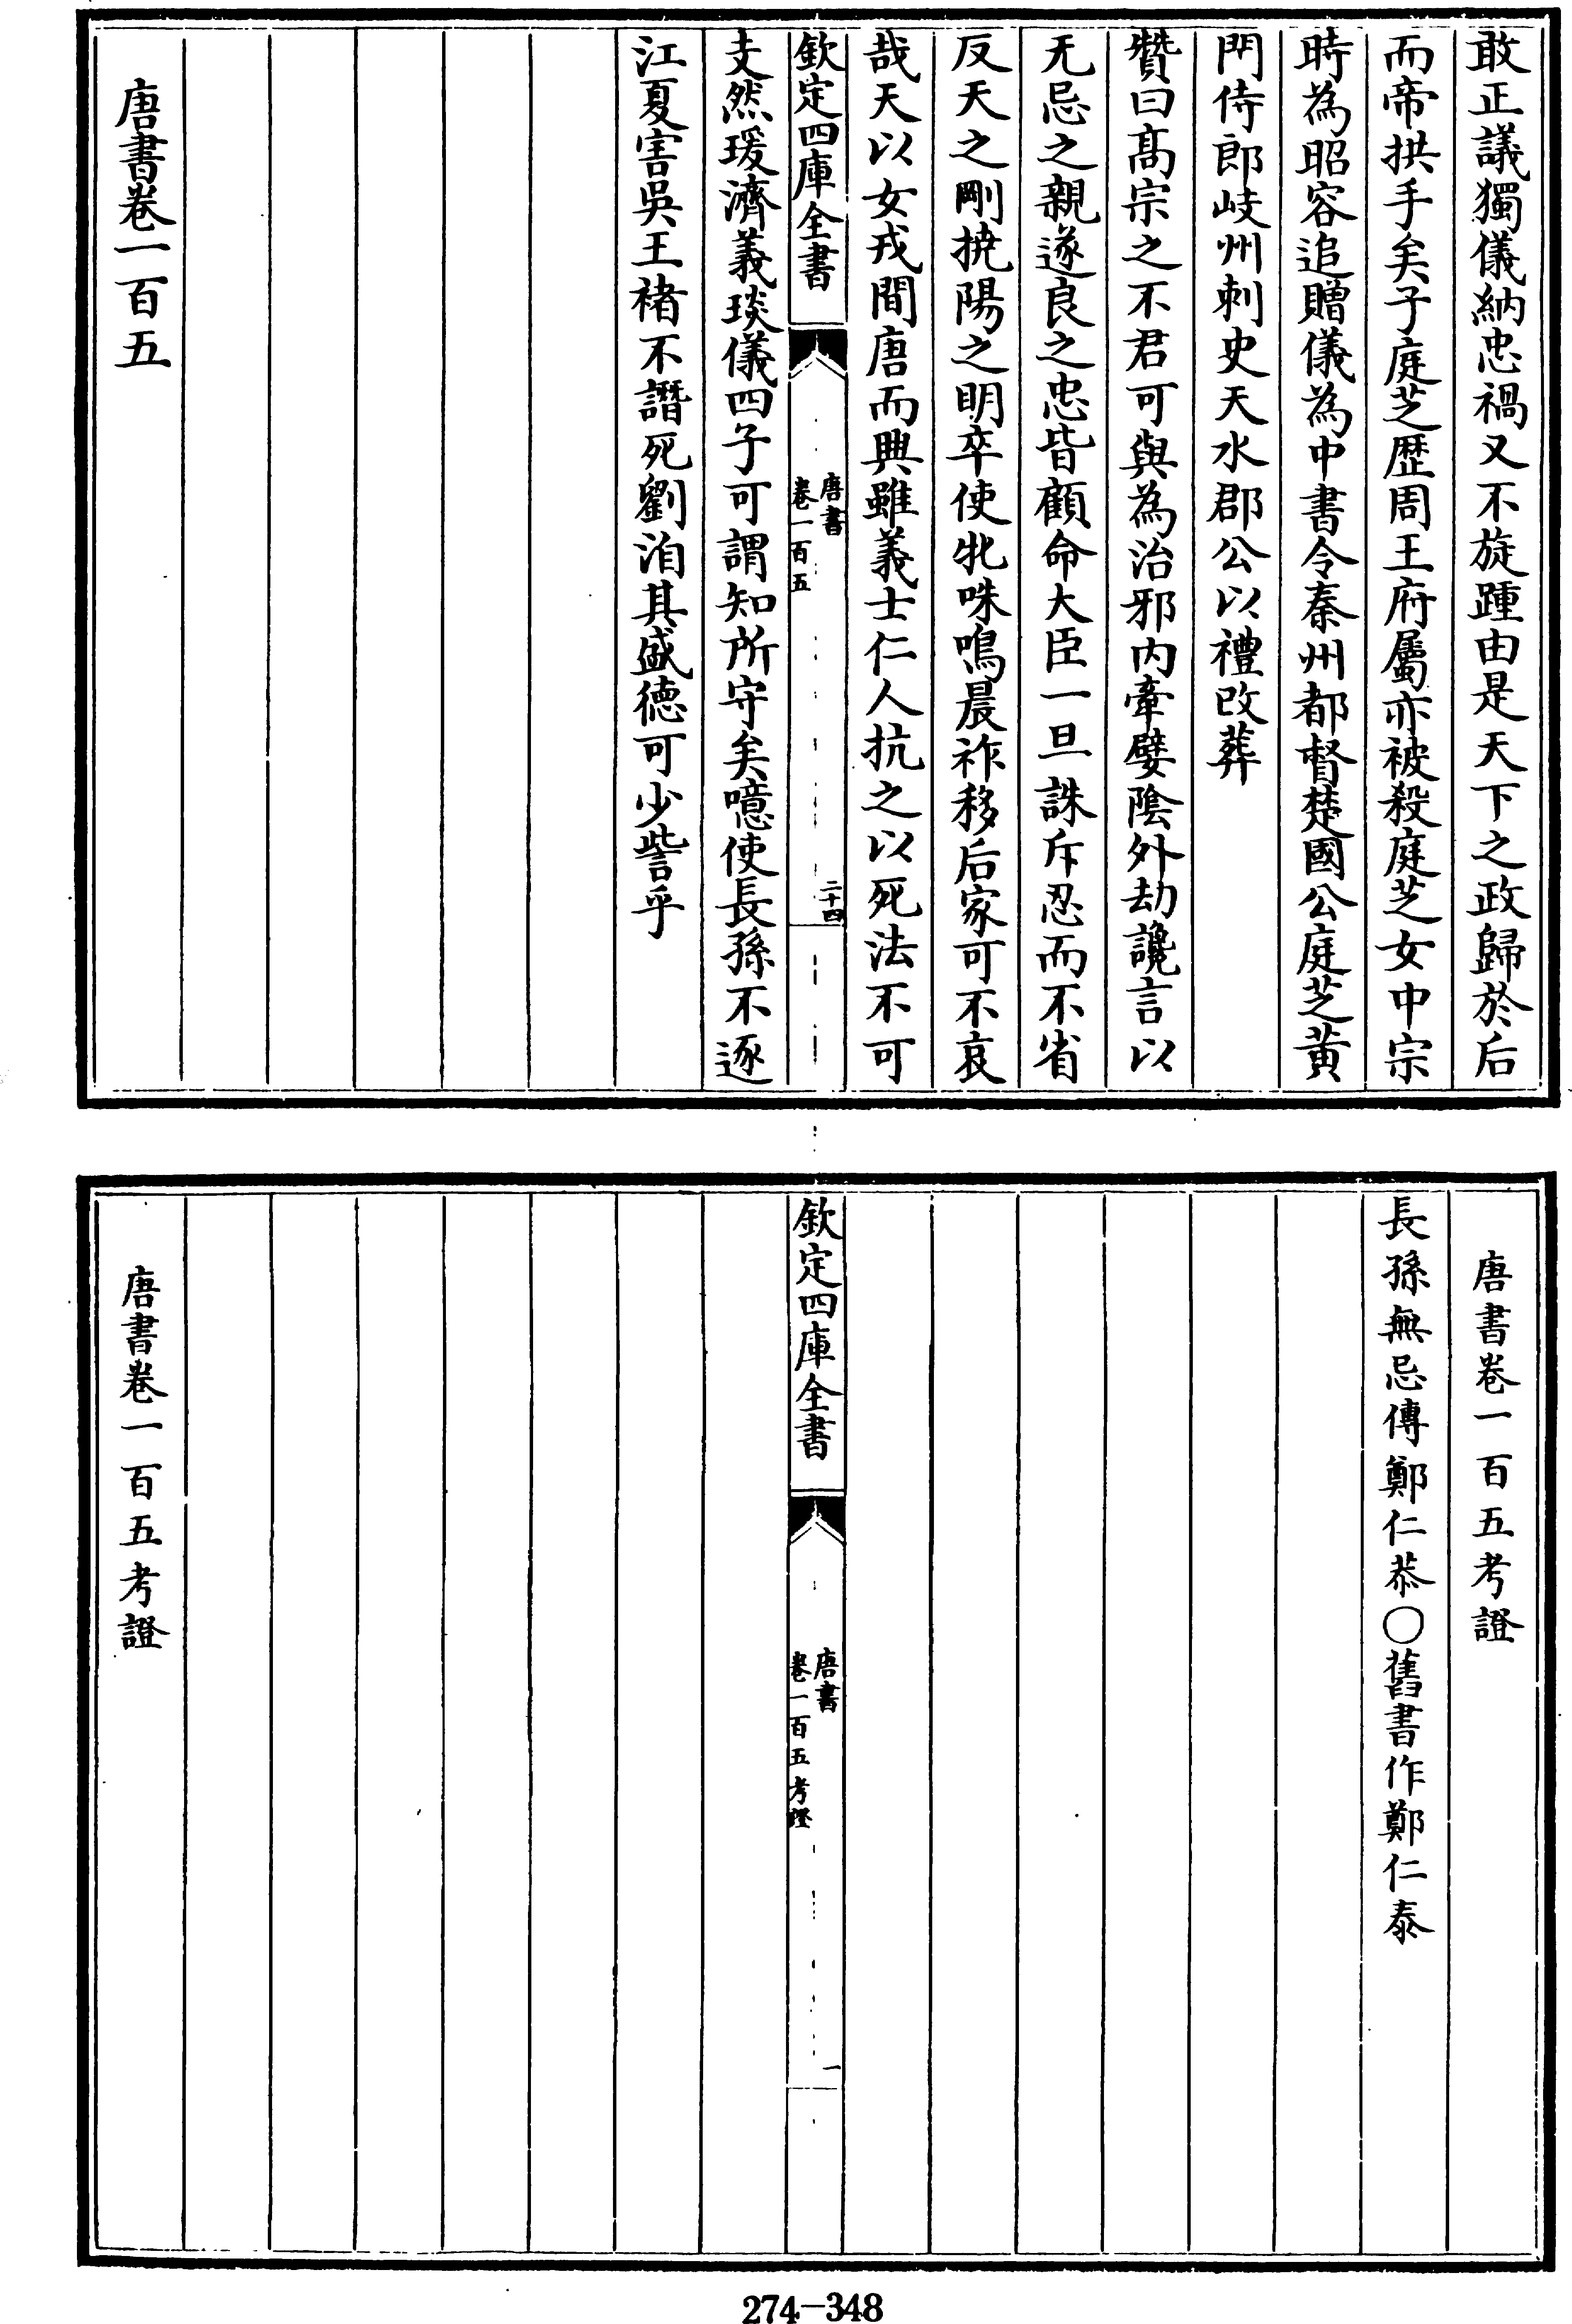 敢正議獨儀納忠禍又不旋踵由是天下之政歸於后
而帝拱手矣子庭芝歴周王府屬亦被殺庭芝女中宗
時為昭容追贈儀為中書令秦州都督楚國公庭芝黄
門侍郎岐州刺史天水郡公以禮改葬
贊曰髙宗之不君可與為治邪内牽嬖隂外劫讒言以
无忌之親遂良之忠皆顧命大臣一旦誅斥忍而不省
反天之剛撓陽之明卒使牝咮鳴晨祚移后家可不哀
哉天以女戎間唐而興雖義士仁人抗之以死法不可
欽定四庫全書
唐書
卷一百五
二十四
支然瑗濟義琰儀四子可謂知所守矣噫使長孫不逐
江夏害吳王褚不譖死劉洎其盛德可少訾乎
唐書卷一百五
唐書卷一百五考證
長孫無忌傳鄭仁恭〇舊書作鄭仁泰
欽定四庫全書
唐書
卷一百五考證
一
唐書卷一百五考證
274-348